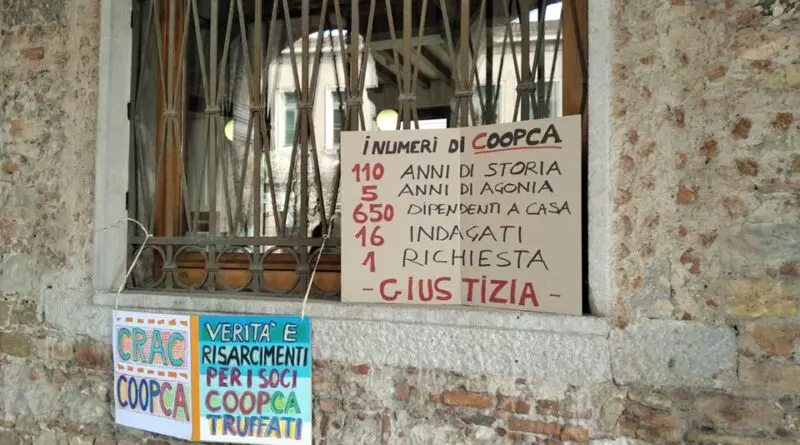 I NUMERI DI COOPCA
110 ANNI DI STORIA
5 ANNI DI AGONIA
650 DIPENDENTI A CASA
16 INDAGATI
1 RICHIESTA
- GIUSTIZIA -
CRAC
COOPCA
VERITA' E
RISARCIMENTI
PER I SOCI
COOPCA
TRUFFATI